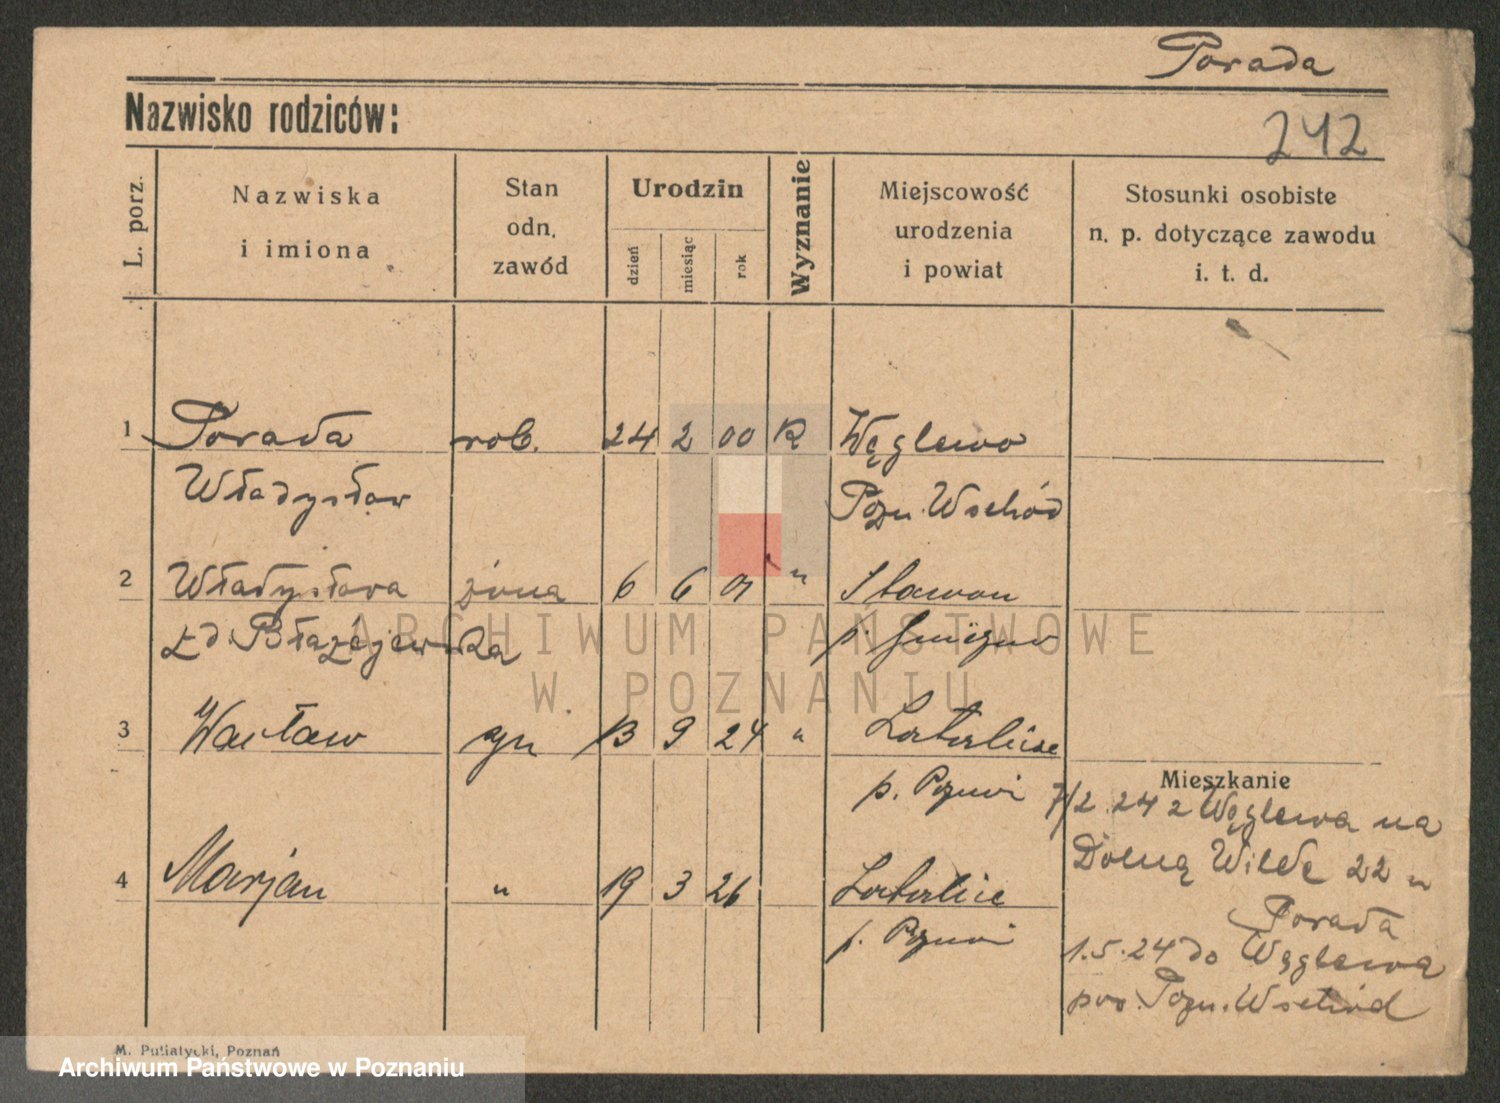 Porada
Nazwisko rodziców:
242
L. porz.
Nazwiska
i imiona
Stan
odn.
zawód
Urodzin
dzień
miesiąc
rok
Wyznanie
Miejscowość
urodzenia
i powiat
Stosunki osobiste
n. p. dotyczące zawodu
i. t. d.
1 Porada rob. 24 2 00 R Węglewo
Władysław Pozn. Wschód
2 Władysława żona 6 6 01 " Stawon
z d. Błażejewska p. Gniezno
3 Wacław syn 13 9 24 "
p. Pozn
Mieszkanie
7/2 24 z Węglewa na
Dolną Wildę 22 u
Porada
4 Marjan " 19 3 26
p. Pozn
1.5.24 do Węglewa
pow. Pozn. Wschód
ARCHIWUM PAŃSTWOWE
W POZNANIU
M. Putiatycki, Poznań
Archiwum Państwowe w Poznaniu